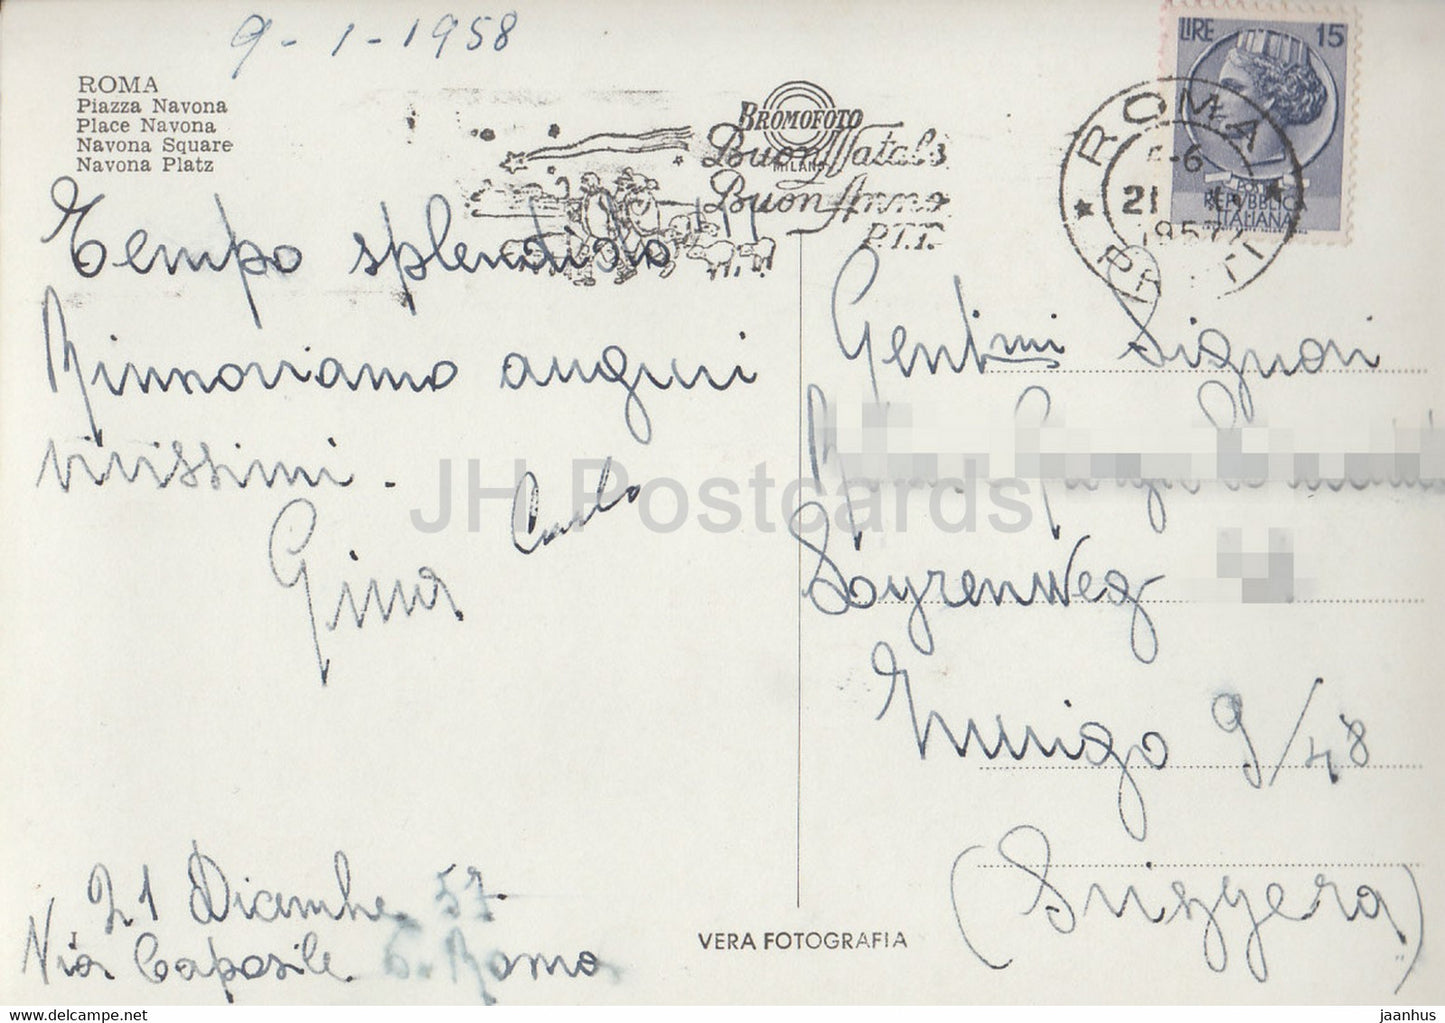 9-1-1958
ROMA
Piazza Navona
Place Navona
Navona Square
Navona Platz
BROMOFOTO
MILANO
Buon Natale
Buon Anno
P.T.T.
ROMA
21
1957
LIRE 15
POSTE
REPVBBLICA
ITALIANA
Tempo splendido!!!
Rinnoviamo auguri
vivissimi.
Gina Carlo
21 Dicembre 57
Via Caposile Roma
VERA FOTOGRAFIA
Gent.mi Signori
Zurigo 9/48
(Svizzera)
JH Postcards
www.hippostcard.com/store/jhpostcards
jaanhus